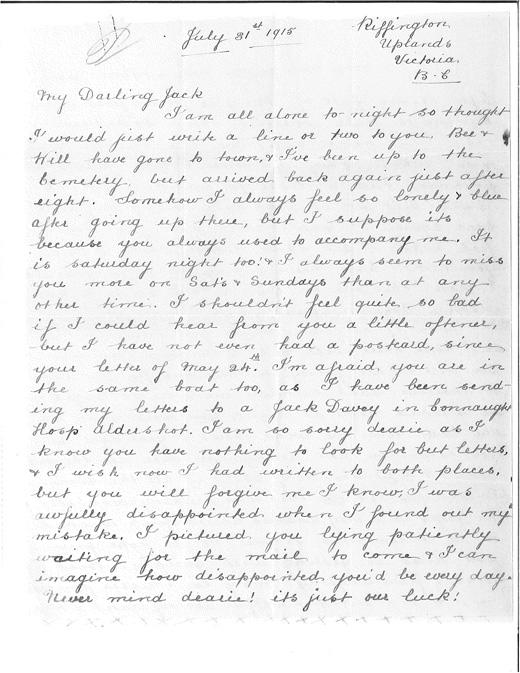 July 31st 1915
Riffington
Uplands
Victoria.
B.C
My Darling Jack
I am all alone to-night so thought
I would just write a line or two to you. Bee &
Will have gone to town, & I've been up to the
Cemetery, but arrived back again just after
eight. Somehow I always feel so lonely & blue
after going up there, but I suppose its
because you always used to accompany me. It
is saturday night too! & I always seem to miss
you more on Sat's & Sundays than at any
other time. I shouldn't feel quite so bad
if I could hear from you a little oftener,
but I have not even had a postcard, since
your letter of May 24th. I'm afraid you are in
the same boat too, as I have been send-
ing my letters to a Jack Davey in Connaught
Hosp Aldershot. I am so sorry dearie as I
know you have nothing to look for but letters,
& I wish now I had written to both places,
but you will forgive me I know, I was
awfully disappointed when I found out my
mistake. I pictured you lying patiently
waiting for the mail to come & I can
imagine how disappointed you'd be every day.
Never mind dearie! its just our luck!